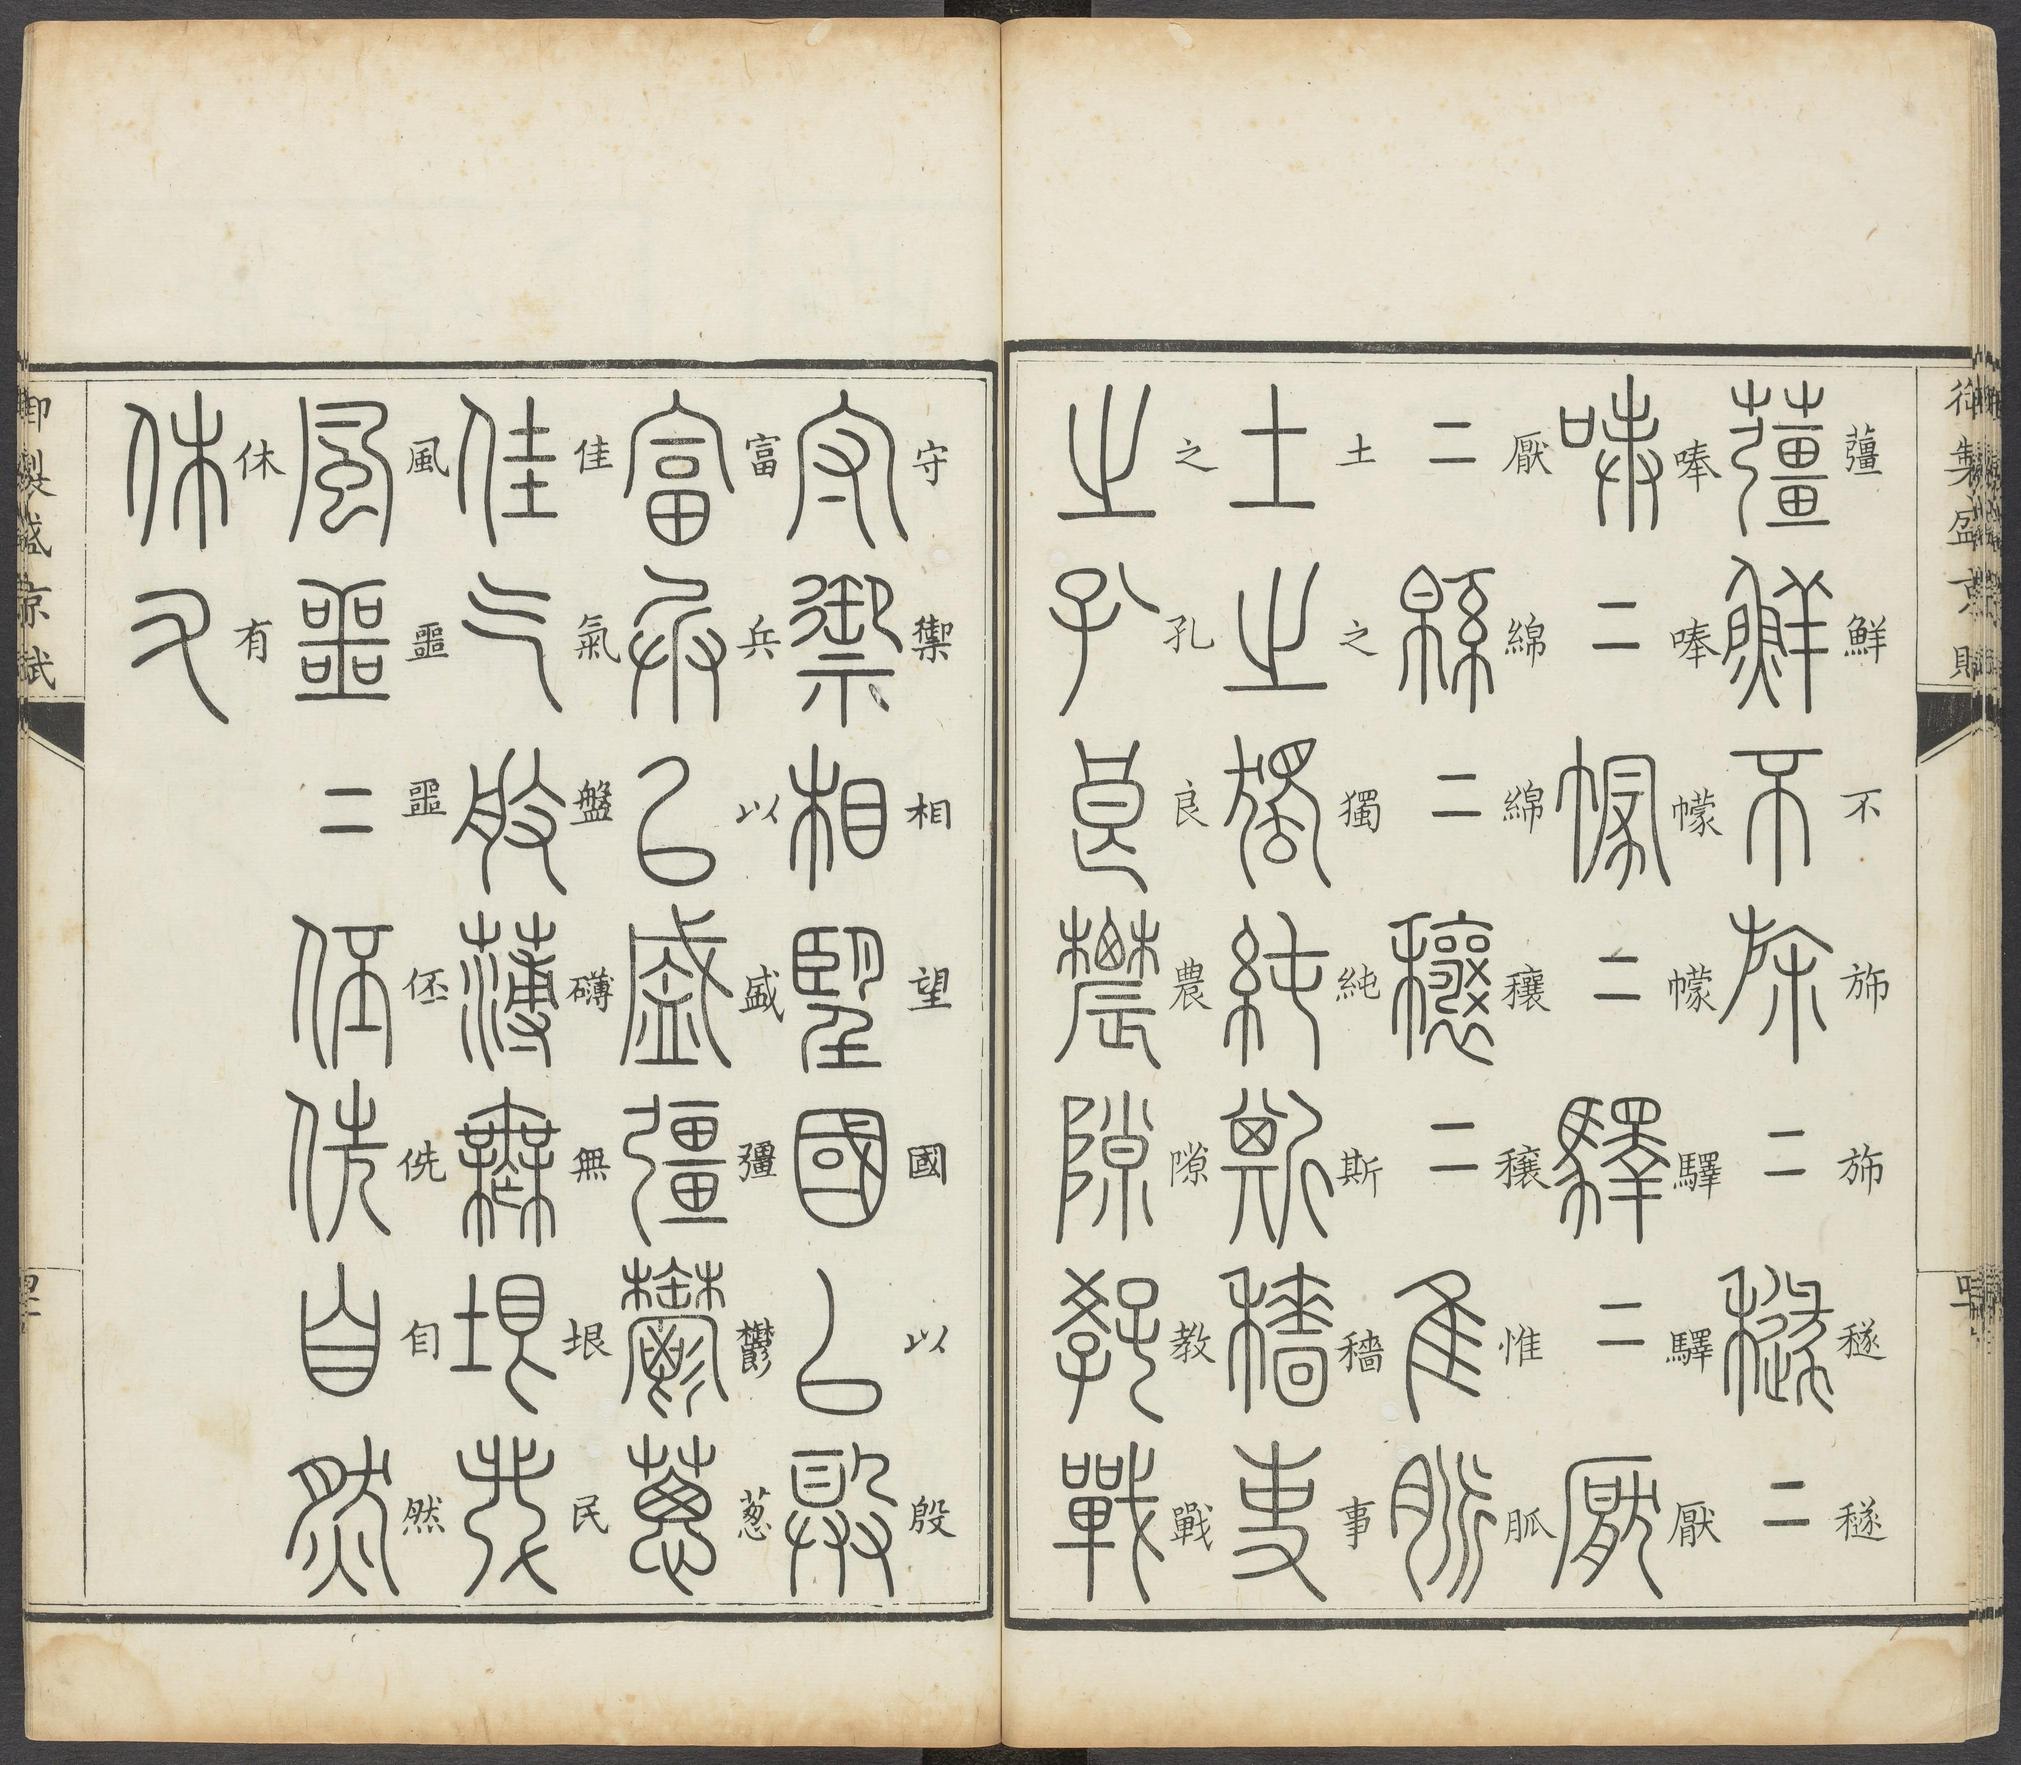 御製盛京賦
䕬鮮不旆旆穟穟
䕬鮮不旆二穟二
唪唪幪幪驛驛厭
唪二幪二驛二厭
厭綿綿穰穰惟脈
二緜二穰二隹脈
土之獨純斯穡事
土之獨純斯穡事
之孔良農隙教戰
之孔良農隙教戰
守禦相望國以殷
守禦相望國以殷
富兵以盛彊鬱葱
富兵以盛彊鬱蔥
佳氣盤礴無垠民
佳气般薄無垠民
風噩噩伾侁自然
風噩二伾侁自然
休有
休又
御製盛京賦